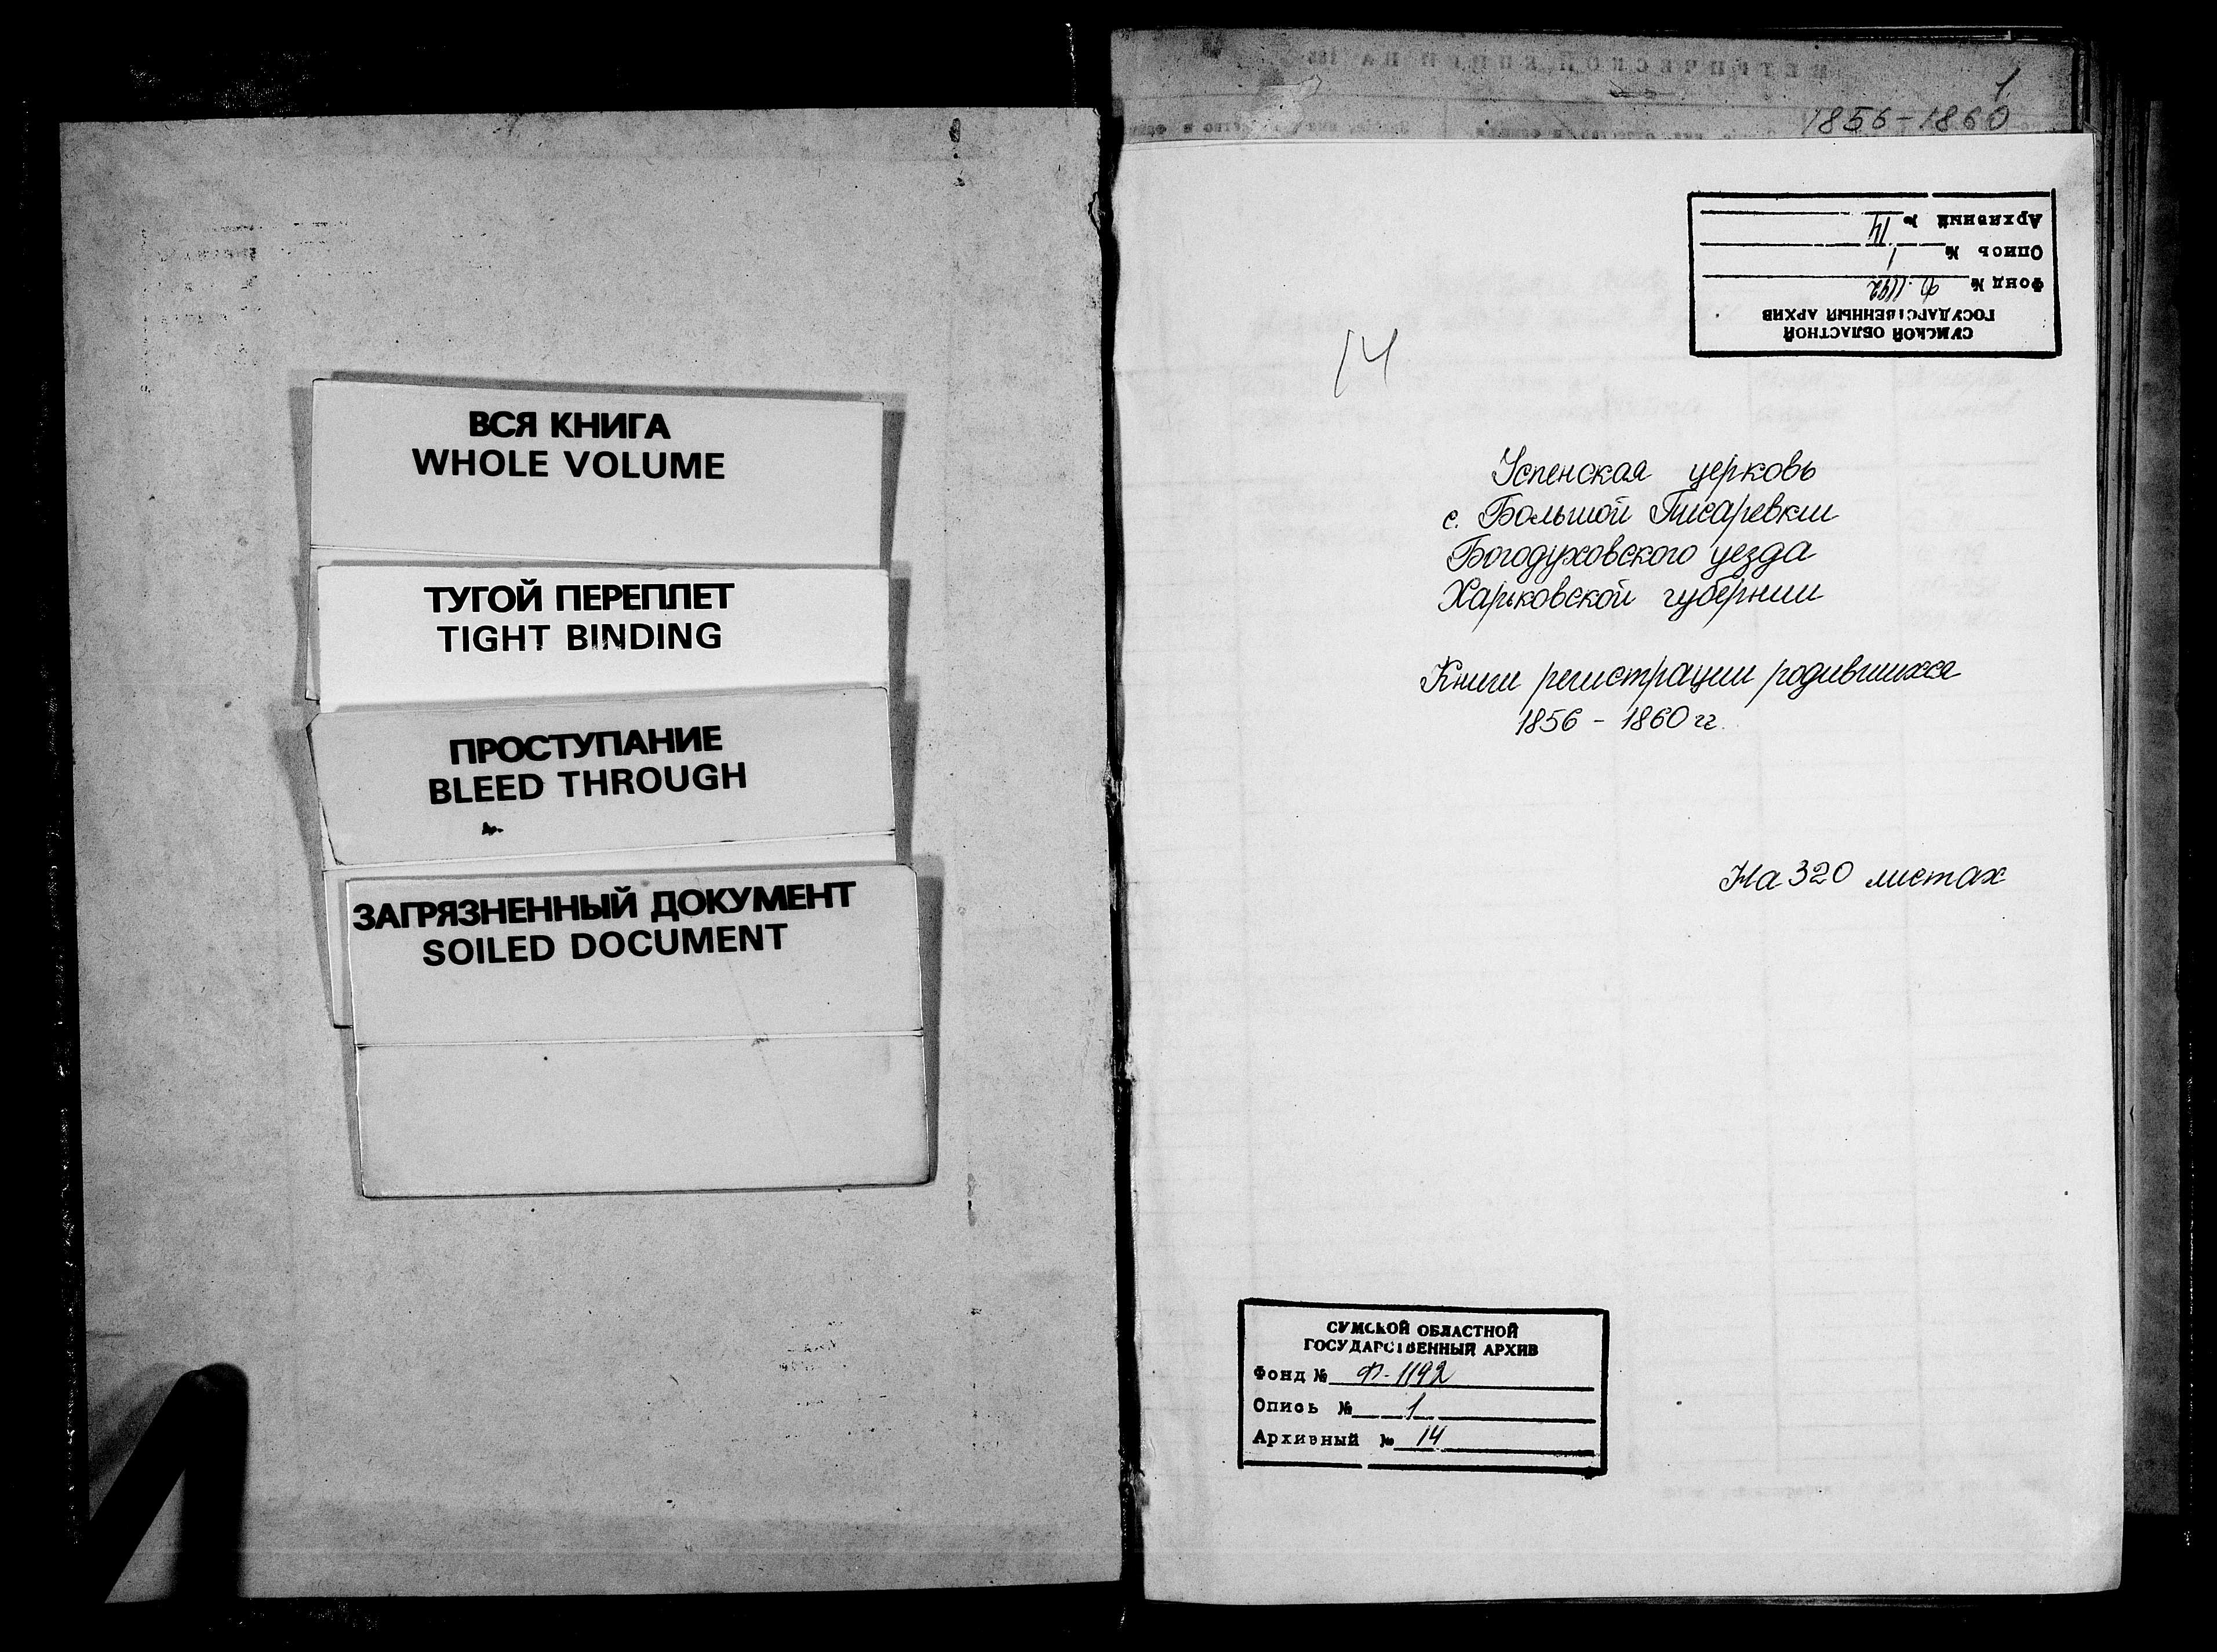 ВСЯ КНИГА
WHOLE VOLUME
ТУГОЙ ПЕРЕПЛЕТ
TIGHT BINDING
ПРОСТУПАНИЕ
BLEED THROUGH
ЗАГРЯЗНЕННЫЙ ДОКУМЕНТ
SOILED DOCUMENT
МЕТРИЧЕСКОЙ КНИГИ НА 185
1
1856-1860
СУМСКОЙ ОБЛАСТНОЙ
ГОСУДАРСТВЕННЫЙ АРХИВ
Фонд № Ф. 1192
Опись № 1
Архивный № 14
14
Успенская церковь
с. Большой Писаревки
Богодуховского уезда
Харьковской губернии
Книги регистрации родившихся
1856 - 1860 гг.
На 320 листах
СУМСКОЙ ОБЛАСТНОЙ
ГОСУДАРСТВЕННЫЙ АРХИВ
Фонд № Ф. 1192
Опись № 1
Архивный № 14